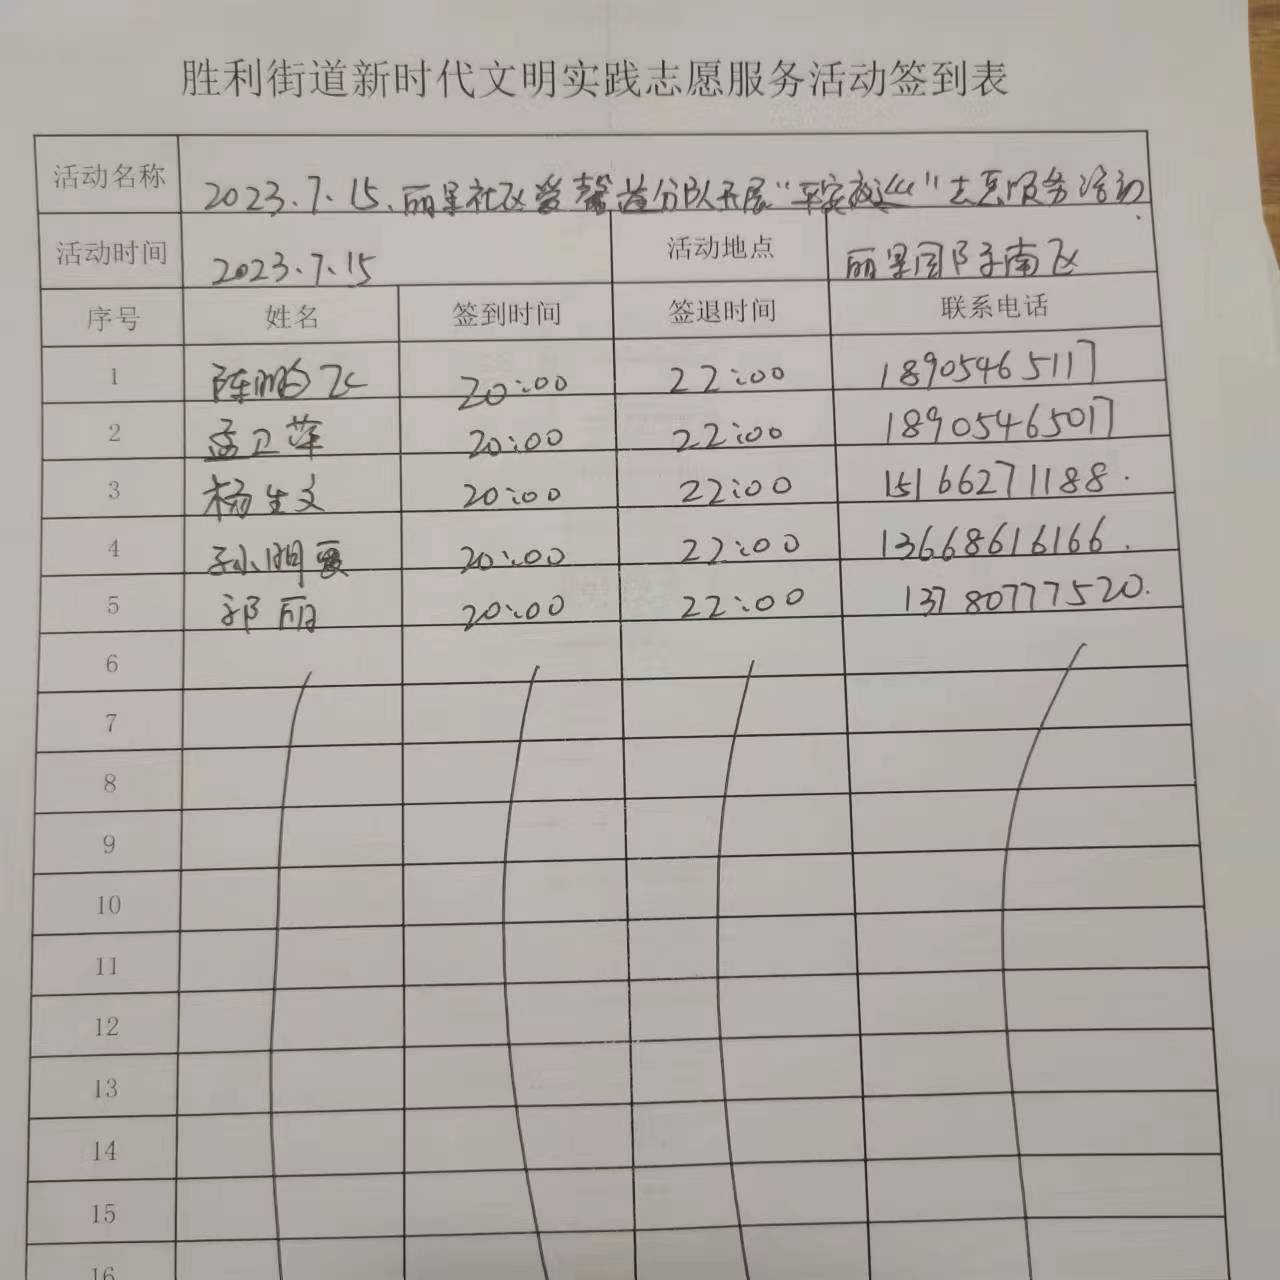 胜利街道新时代文明实践志愿服务活动签到表
活动名称 2023.7.15.丽景社区爱馨益分队开展“平安夜巡”志愿服务活动.
活动时间 2023.7.15 活动地点 丽景园 南区
序号 姓名 签到时间 签退时间 联系电话
1 陈鹏飞 20:00 22:00 18905465117
2 孟卫萍 20:00 22:00 18905465017
3 杨生文 20:00 22:00 15166271188.
4 孙明霞 20:00 22:00 13668616166.
5 郭丽 20:00 22:00 13780777520.
6
7
8
9
10
11
12
13
14
15
16